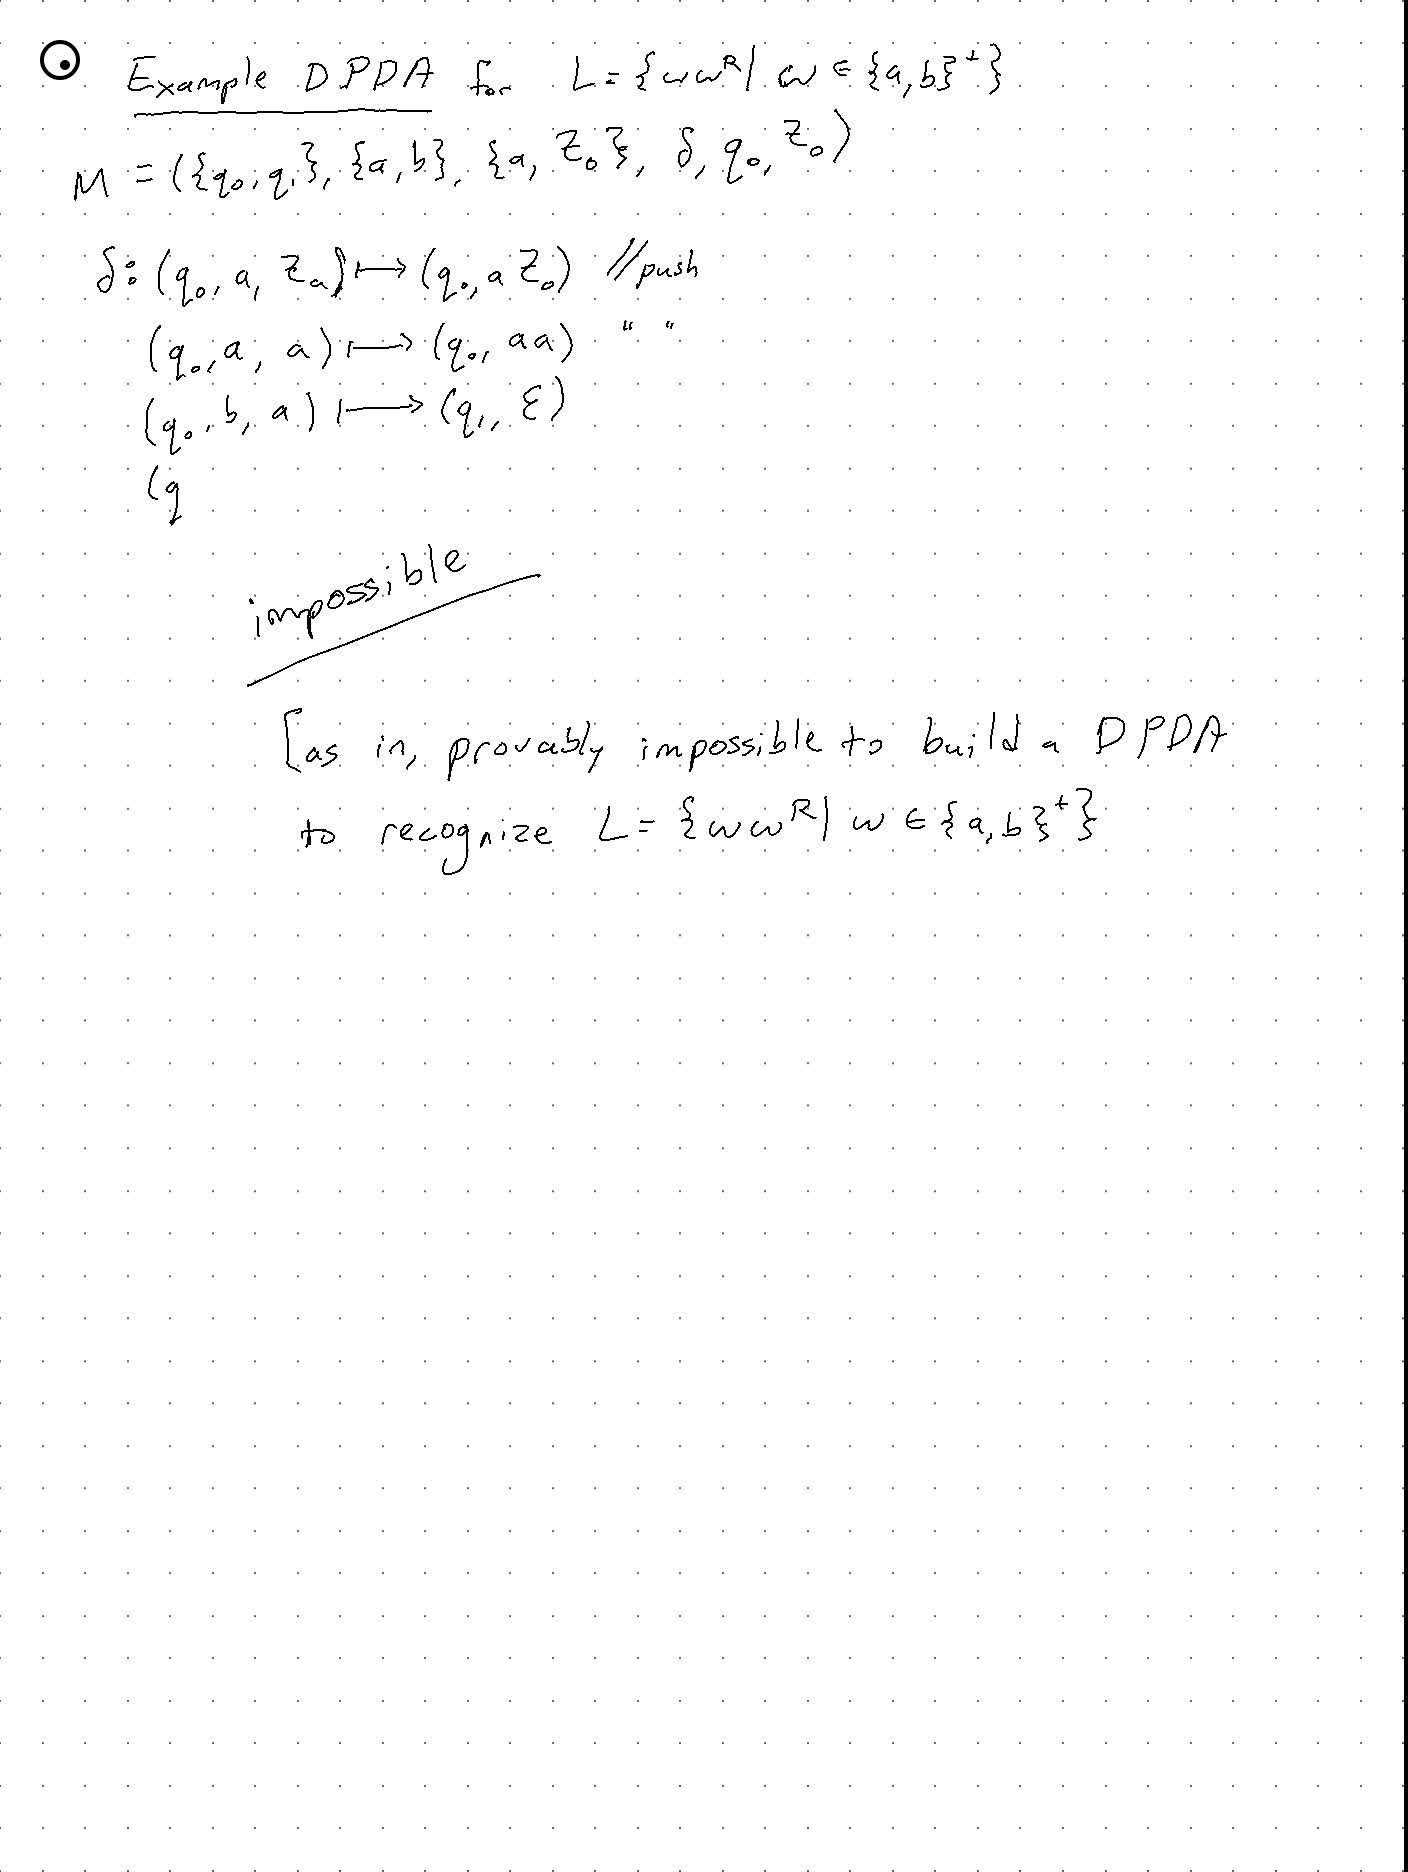 Example DPDA for L = {ww^R | w ∈ {a,b}^+}
M = ({q₀, q₁}, {a,b}, {a, Z₀}, δ, q₀, Z₀)
δ: (q₀, a, Zₐ) ↦ (q₀, a Z₀) // push
(q₀, a, a) ↦ (q₀, aa) " "
(q₀, b, a) ↦ (q₁, ε)
(q
impossible
[as in, provably impossible to build a DPDA
to recognize L = {ww^R | w ∈ {a,b}^+}